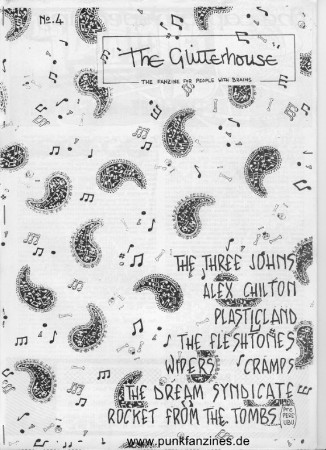 No. 4
The Glitterhouse
THE FANZINE FOR PEOPLE WITH BRAINS
THE THREE JOHNS
ALEX CHILTON
PLASTICLAND
THE FLESHTONES
WIPERS CRAMPS
THE DREAM SYNDICATE
ROCKET FROM THE TOMBS
PRE PERE UBU
www.punkfanzines.de